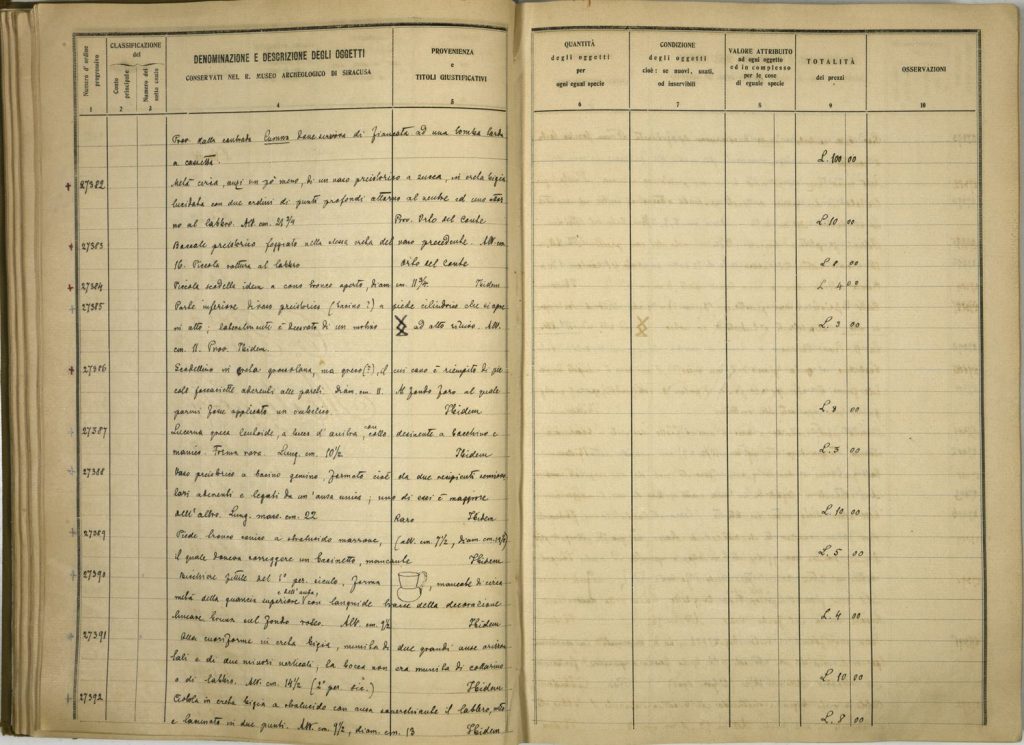 Numero d'ordine progressivo
CLASSIFICAZIONE
del
Conto principale
Numero del sotto conto
DENOMINAZIONE E DESCRIZIONE DEGLI OGGETTI
CONSERVATI NEL R. MUSEO ARCHEOLOGICO DI SIRACUSA
PROVENIENZA
e
TITOLI GIUSTIFICATIVI
QUANTITÀ
degli oggetti
per
ogni eguni specie
CONDIZIONE
degli oggetti
cioè: se nuovi, usati,
od inservibili
VALORE ATTRIBUITO
ad ogni oggetto
ed in complesso
per le cose
di eguale specie
TOTALITÀ
dei prezzi
OSSERVAZIONI
1 2 3 4 5 6 7 8 9 10
Prov. dalla contrada dove serviva di fiancata ad una tomba
a cassetta. L. 100 00
27382 Metà circa, anzi un pò meno, di un vaso preistorico a zucca, in creta bigia
lucidata con due ordini di punti profondi attorno al ventre ed uno
no al labbro. Alt. cm. 21 3/4 Prov. Orto del Conte L. 10 00
27383 Boccale preistorico foggiato nella stessa creta del vaso precedente. Alt. cm.
16. Piccola rottura al labbro Orto del Conte L. 8 00
27384 Piccola scodella idem a cono tronco aperto, diam. cm. 11 3/4. Ibidem L. 4 00
27385 Parte inferiore di vaso preistorico (bacino?) a piede cilindrico che si apre
in alto; lateralmente è decorato di un motivo ad alto rilievo. Alt. L. 3 00
cm. 11. Prov. Ibidem.
27386 Scodellino in creta grossolana, ma greco (?), il cui cavo è riempito di pic
cole focaccette aderenti alle pareti. Diam. cm. 8. Al fondo foro al quale
parmi fosse applicato un Ibidem L. 8 00
27387 Lucerna greca a becco d'anitra, con collo desinente a bocchino e
manico. Forma rara. Lung. cm. 10 1/2 Ibidem L. 3 00
27388 Vaso preistorico a bacino gemino, formato cioè da due recipienti
lari aderenti e legati da un'ansa unica; uno di essi è maggiore
dell'altro. Lung. mass. cm. 22 Raro Ibidem L. 10 00
27389 Piede tronco conico a stralucido marrone, (alt. cm. 7 1/2, diam. cm.
il quale doveva sorreggere un bacinetto, mancante Ibidem L. 5 00
27390 Bicchiere fittile del 1° per. siculo, forma , mancante di circa
metà della superiore dell'ansa, con languide tracce della decorazione
lineare bruna sul fondo roseo. Alt. cm. 9 1/2 Ibidem L. 4 00
27391 Olla cuoriforme in creta bigia, munita di due grandi anse orizzon
tali e di due minori verticali, la bocca non era munita di collarino
o di labbro. Alt. cm. 14 1/2 (2° per. sic.) Ibidem L. 10 00
27392 Ciotola in creta bigia a stralucido con ansa soverchiante il labbro,
e in due punti. Alt. cm. 9 1/2, diam. cm. 13 Ibidem L. 8 00